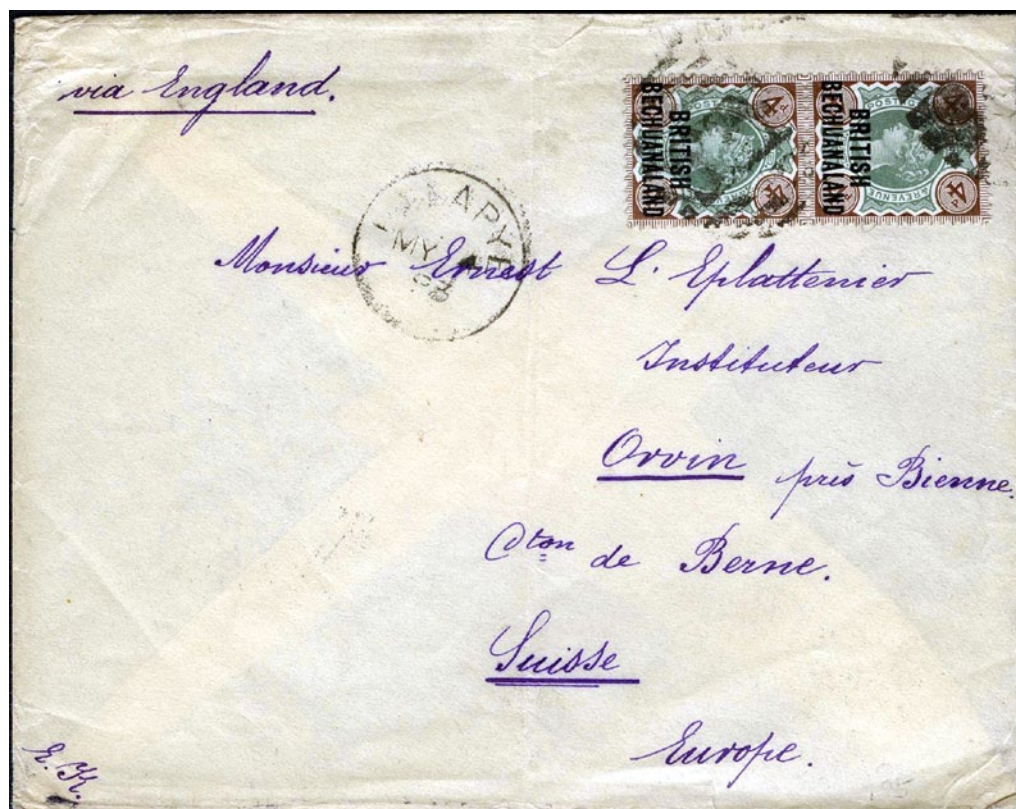 via England.
BRITISH
BECHUANALAND
BRITISH
BECHUANALAND
4d
4d
POSTAGE
& REVENUE
MY
Monsieur Ernest L'Eplattenier
Instituteur
Orvin près Bienne.
Cton de Berne.
Suisse
Europe.
E. K.